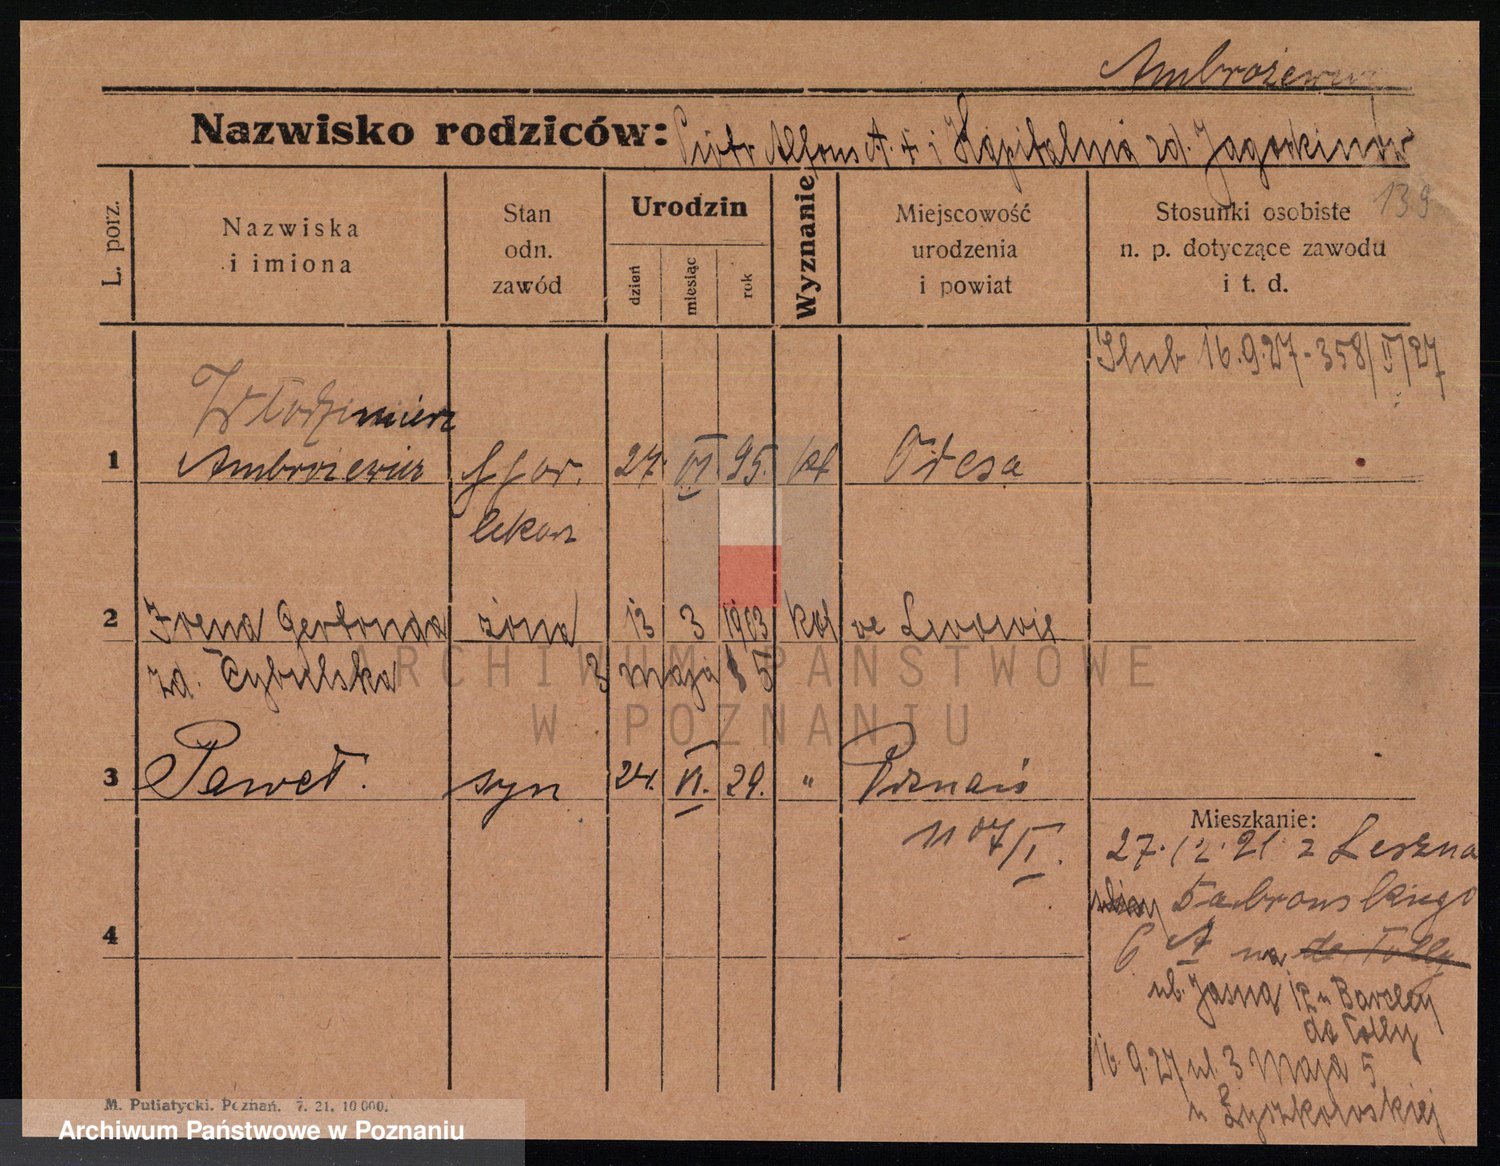 Ambrożewicz
Nazwisko rodziców: Piotr Alfons A. i Kapitalnia zd.
139
L. porz.
Nazwiska
i imiona
Stan
odn.
zawód
Urodzin
dzień
miesiąc
rok
Wyznanie
Miejscowość
urodzenia
i powiat
Stosunki osobiste
n. p. dotyczące zawodu
i t. d.
Ślub 16.9.27 - 358/II/27
Włodzimierz
1 Ambrożewicz 27. VI 95. kat Odesa
lekarz
2 Irena żona 13 3 1903 kat we Lwowie
zd. Cybulska 3 maja 5
3 Paweł. syn 24. VI. 29. " Poznań
1107/II.
Mieszkanie:
27.12.21 z Leszna
Dabrowskiego
4
6 A na de Tolly
ul. Jasna 12 u Barcley
de Tolly
16.9.27 ul. 3 Maja 5
u Łyszkowskiej
M. Putiatycki. Poznań. 7. 21. 10 000.
ARCHIWUM PAŃSTWOWE
W POZNANIU
Archiwum Państwowe w Poznaniu